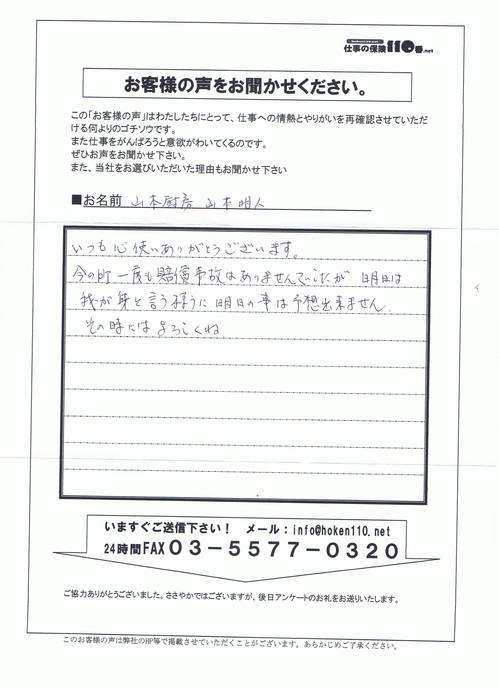 仕事の保険110番.net
お客様の声をお聞かせください。
この「お客様の声」はわたしたちにとって、仕事への情熱とやりがいを再確認させていただ
ける何よりのゴチソウです。
また仕事をがんばろうと意欲がわいてくるのです。
ぜひお声をお聞かせ下さい。
また、当社をお選びいただいた理由もお聞かせ下さい
■お名前 山本厨房 山本明人
いつも心使いありがとうございます。
今の所一度も賠償事故はありませんでしたが 明日は
我が身と言う様うに明日の事は予想出来ません.
その時にはよろしくね
いますぐご送信下さい! メール:info@hoken110.net
24時間FAX 03-5577-0320
ご協力ありがとうございました。ささやかではございますが、後日アンケートのお礼をお送りいたします。
このお客様の声は弊社のHP等で掲載させていただくことがございます。あらかじめご了承ください。